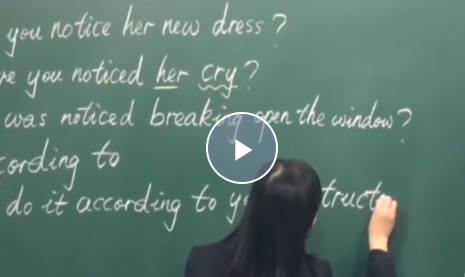 you notice her new dress?
you noticed her cry?
was noticed breaking open the window?
to
do it according to